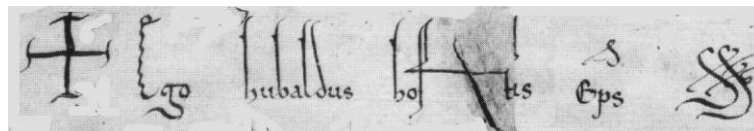 ✝ Ego hubaldus hostiensis Eps SS